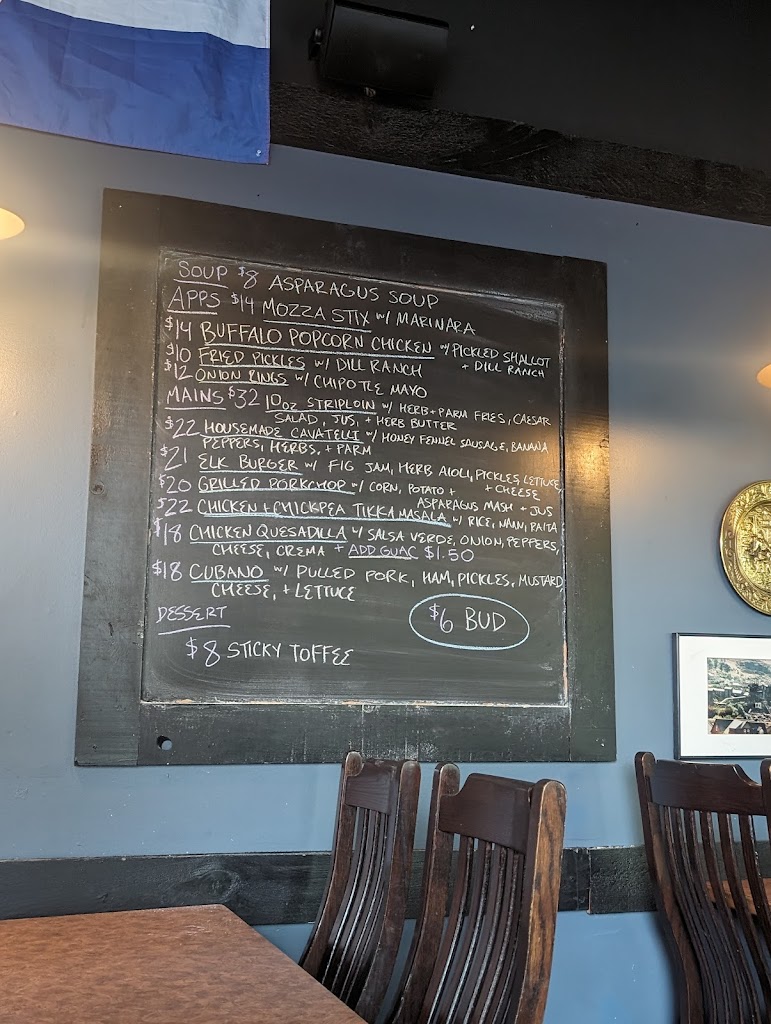 SOUP $8 ASPARAGUS SOUP
APPS $14 MOZZA STIX w/ MARINARA
$14 BUFFALO POPCORN CHICKEN w/ PICKLED SHALLOT
+ DILL RANCH
$10 FRIED PICKLES w/ DILL RANCH
$12 ONION RINGS w/ CHIPOTLE MAYO
MAINS $32 10oz STRIPLOIN w/ HERB + PARM FRIES, CAESAR
SALAD, JUS, + HERB BUTTER
$22 HOUSEMADE CAVATELLI w/ HONEY FENNEL SAUSAGE, BANANA
PEPPERS, HERBS, + PARM
$21 ELK BURGER w/ FIG JAM, HERB AIOLI, PICKLES, LETTUCE,
+ CHEESE
$20 GRILLED PORKCHOP w/ CORN, POTATO +
ASPARAGUS MASH + JUS
$22 CHICKEN + CHICKPEA TIKKA MASALA w/ RICE, NAAN, RAITA
$18 CHICKEN QUESADILLA w/ SALSA VERDE, ONION, PEPPERS,
CHEESE, CREMA + ADD GUAC $1.50
$18 CUBANO w/ PULLED PORK, HAM, PICKLES, MUSTARD
CHEESE, + LETTUCE
DESSERT
$6 BUD
$8 STICKY TOFFEE